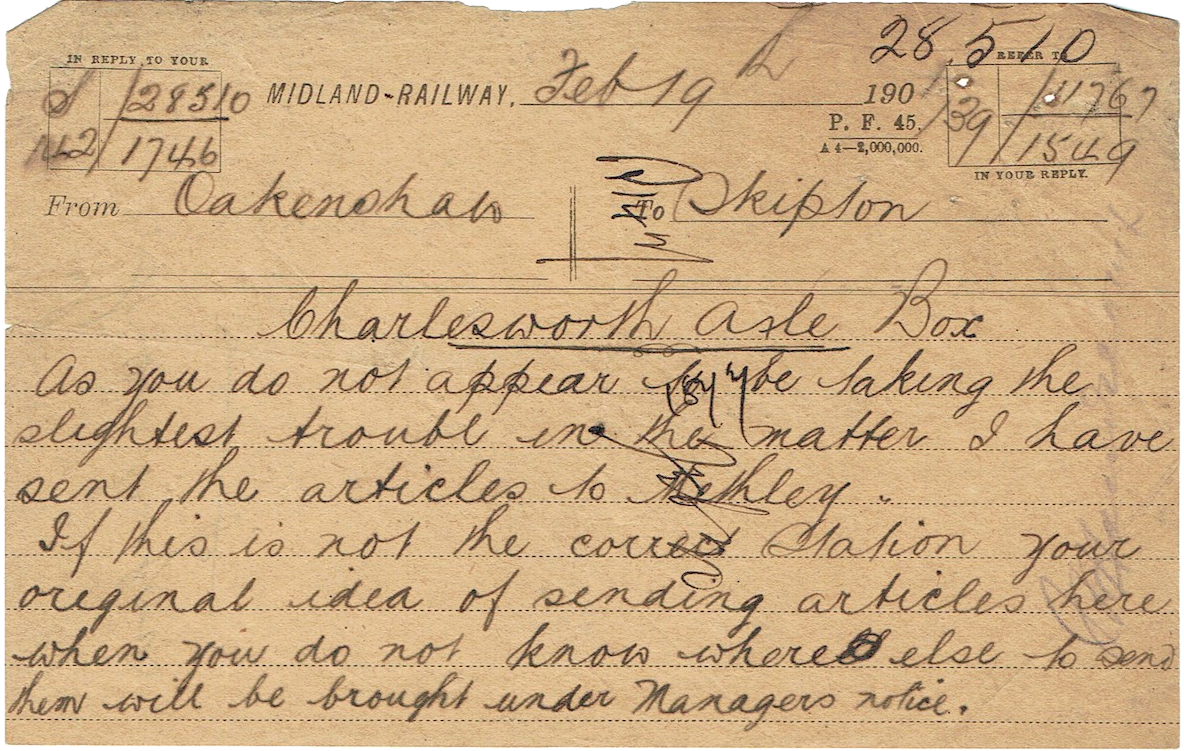 28510
IN REPLY TO YOUR
REFER TO
/28510
142/1746
MIDLAND-RAILWAY, Feb 19 190
P. F. 45.
A 4—2,000,000.
39/11767
/1549
IN YOUR REPLY.
From Oakenshaw To Skipton
Charlesworth Axle Box
As you do not appear to be taking the
slightest trouble in the matter I have
sent the articles to Methley.
If this is not the correct Station your
original idea of sending articles here
when you do not know where else to send
them will be brought under Managers notice.